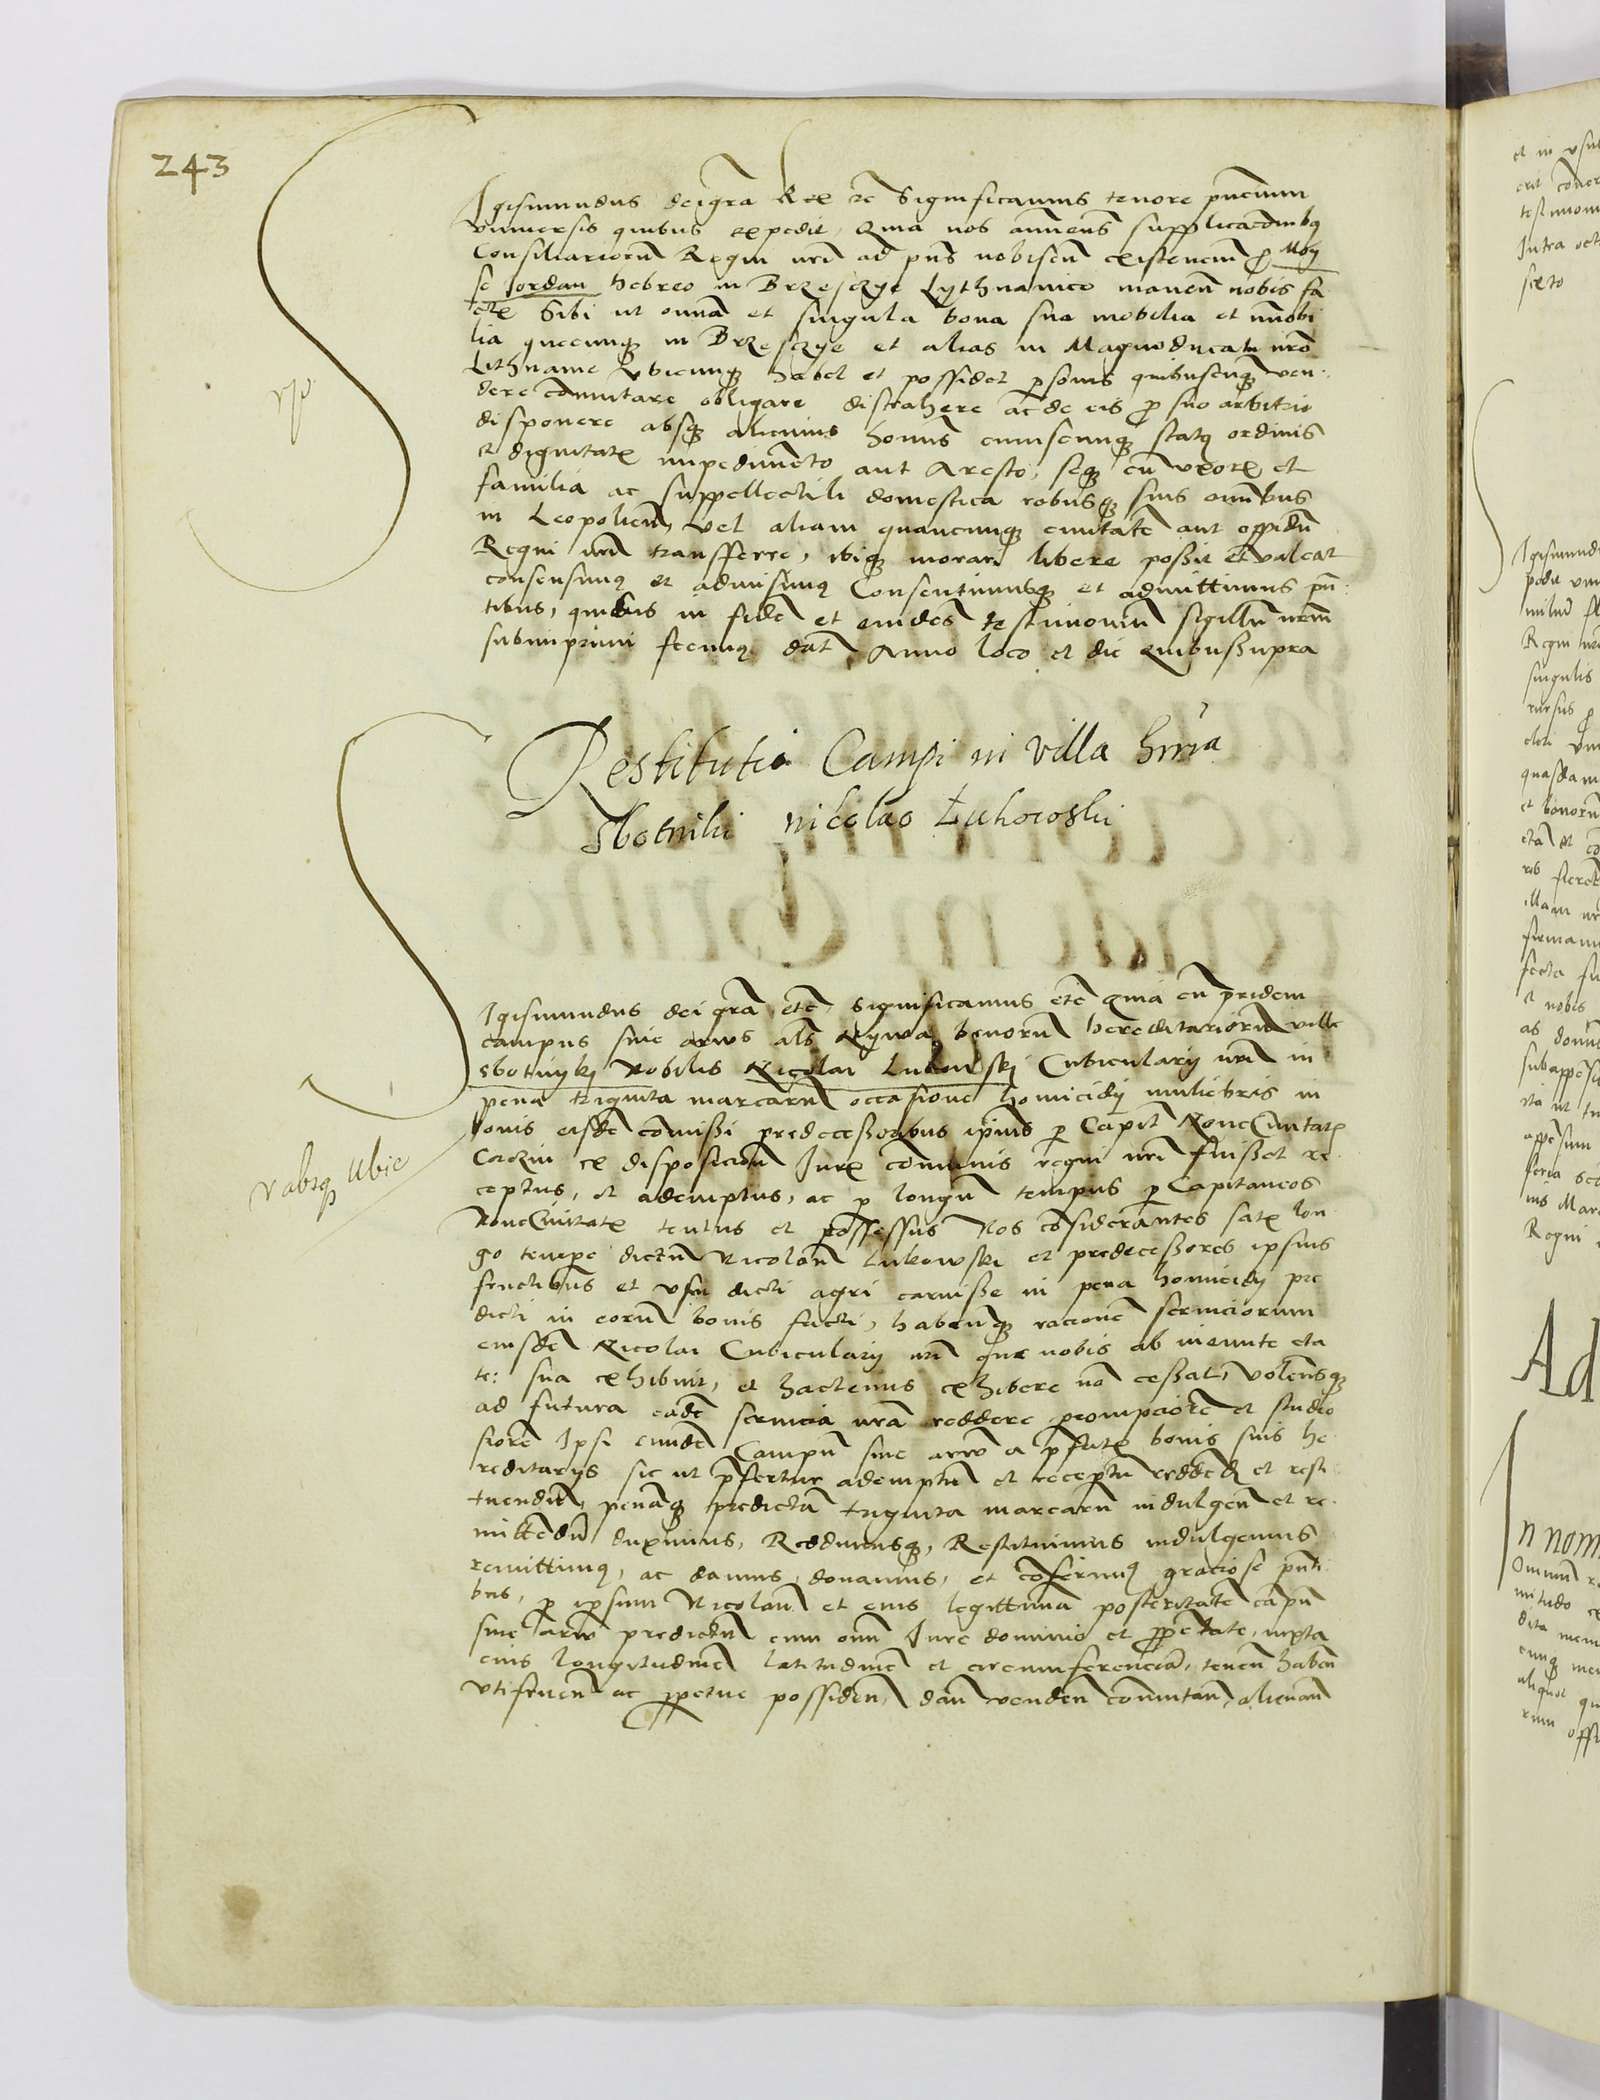 243
Sigismundus dei gra Rex etc Significamus tenore pntium
vniuersis quibus expedit, Quia nos annuens supplicacionibus
Consiliariorum Regni nri ad pns nobiscum existencium pro Moy
se Jordan hebreo in Brzesczye Lythuanice manen nobis fa
ctis Sibi ut omnia et singula bona sua mobilia et immobi
lia quecunq in Brzesczye et alias in Magno ducatu nro
Lithuanie vbicunq habet et possidet personis quibuscunq ven
dere comutare obligare distrahere ac de eis pro suo arbitrio
disponere absq alicuius hominis cuiuscunq status ordinis
et dignitatis impedimento aut Aresto, seq cum vxore et
familia ac suppellectili domestica rebusq suis omnibus
in Leopoliem, vel aliam quamcunq ciuitatem aut oppidum
Regni nri transferre, ibiq morari libere possit et valeat
consensimus et admisimus Consentimusq et admittimus pn
tibus, quibus in fidem et euidens testimonium sigillum nrum
subimprimi fecimus dat Anno loco et die quibus supra
Restitutio Campi in villa hria
Sbotniki nicolao Lukowski
Sigismundus dei gra etc significamus etc quia cum pridem
campus siue aruus als Nywa, bonorum hereditariorum ville
Sbotnyky Nobilis Nicolai Lukowsky Cubicularij nri in
pena triginta marcarum occasione homicidij muliebris in
bonis eisdem comissi predecessoribus ipsius per Capit Noue Ciuitatis
Corczin ex disposicione Juris comunis regni nri fuisset re
ceptus, et ademptus, ac p longum tempus p Capitaneos
Noue Ciuitatis tentus et possessus Nos considerantes satis lon
go tempore dictum Nicolaum Lukowski et predecessores ipsius
fructibus et vsu dicti agri caruisse in pena homicidij pre
dicti in eorum bonis facti, habenq racionem seruiciorum
eiusdem Nicolai Cubicularij nri que nobis ab ineunte eta
te: sua exhibuit, et hactenus exhibere no cessat, volensq
ad futura eadem seruicia nra reddere prompciorem et studio
siorem Ipsi eundem Campum siue aruu a pfatis bonis suis he
reditarijs sic ut pfertur ademptum et receptum reddend et resti
tuendum, penamq predictam triginta marcarum indulgen et re
mittendum duximus, Reddimusq, Restituimus indulgemus
remittimus, ac damus, donamus, et conferimus graciose pnti
bus, p ipsum Nicolaum et eius legittimam posteritatem campum
siue aruu predictum cum omni Jure dominio et ppetate, iuxta
eius longitudinem latitudinem et circumferenciam, tenen haben
vtifruen ac ppetue possiden, dan venden comutan, alienan
v absq Ubie